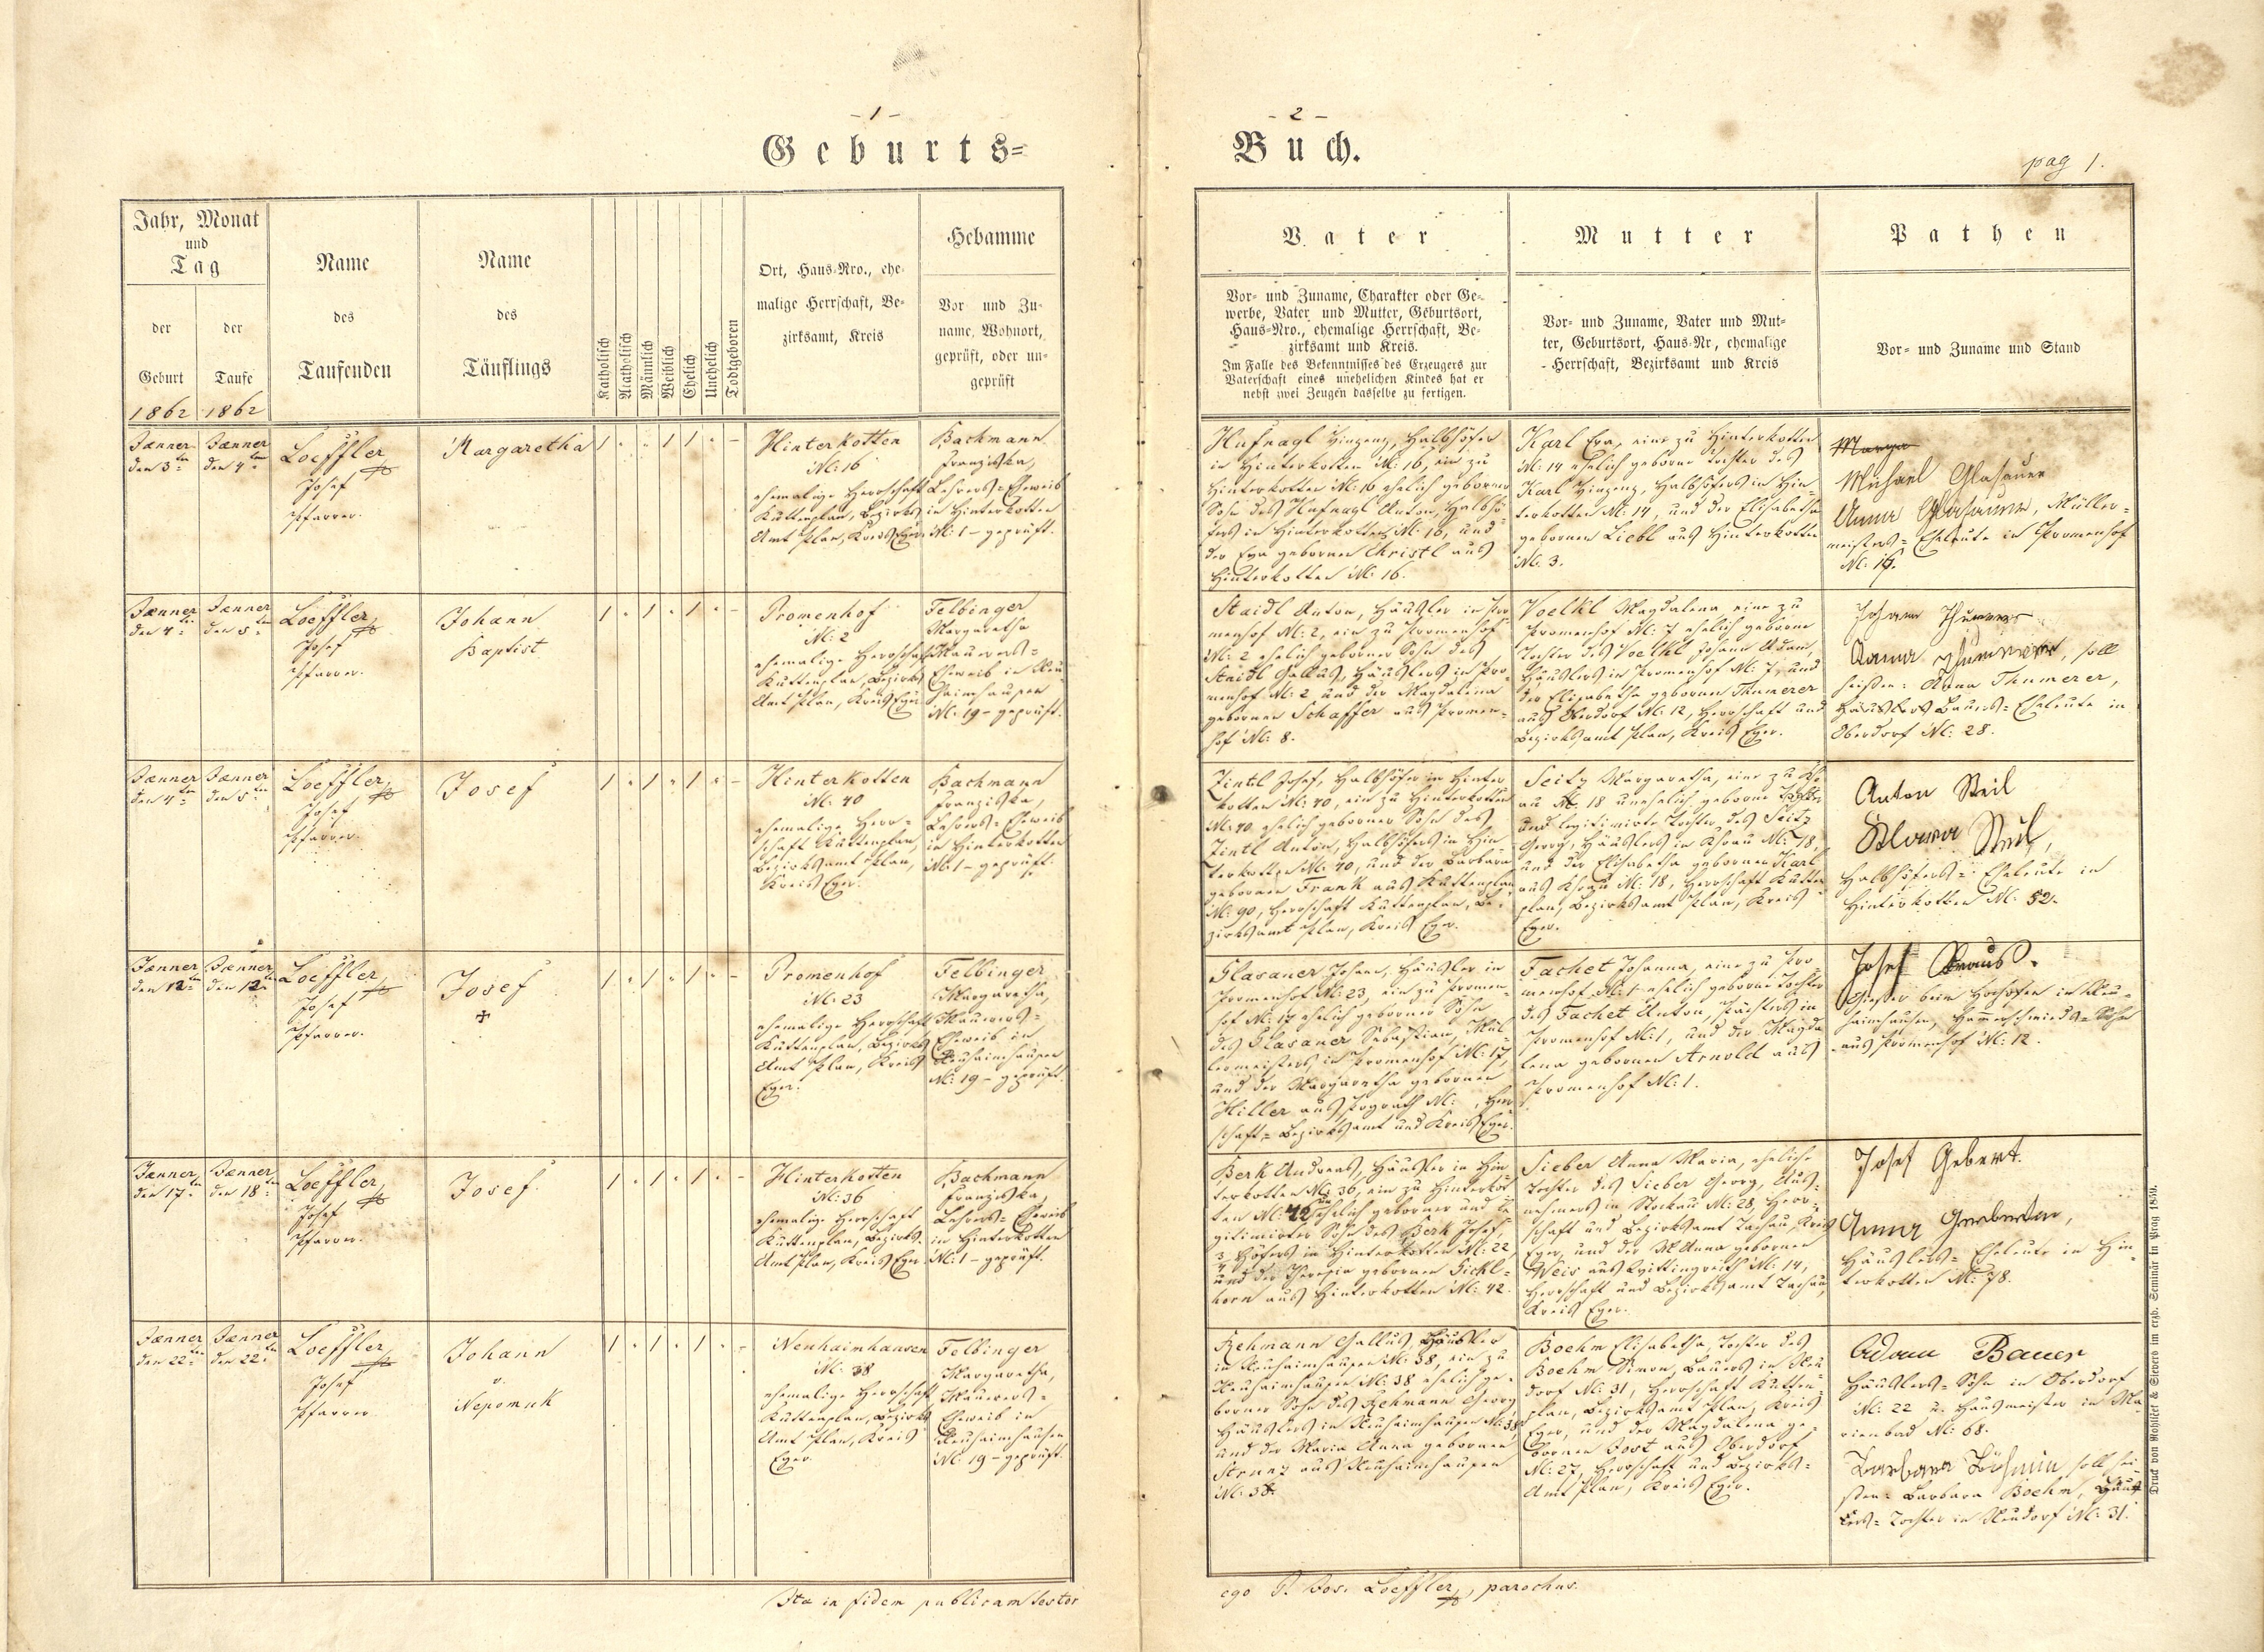 - 1 -
Geburts=
Jahr, Monat
und
Tag
der
Geburt
1862
der
Taufe
1862
Name
des
Taufenden
Name
des
Täuflings
Katholisch
Akatholisch
Männlich
Weiblich
Ehelich
Unehelich
Todtgeboren
Ort, Haus-Nro., ehe-
malige Herrschaft, Be-
zirksamt, Kreis
Hebamme
Vor und Zu-
name, Wohnort,
geprüft, oder un-
geprüft
Jænner
den 3ten
Jænner
den 4ten
Loeffler
Josef
Pfarrer.
Margaretha
Hinterkotten
N: 16
ehemalige Herrschaft
Kuttenplan, Bezirks
Amt Plan, Kreis Eger
Bachmann
Franziska,
Lehrers=Eheweib
in Hinterkotten
N: 1 – geprüft.
Jænner
den 4ten
Jænner
den 5ten
Loeffler
Josef
Pfarrer.
Johann
Baptist
Promenhof
N: 2
ehemalige Herrschaft
Kuttenplan, Bezirks
Amt Plan, Kreis Eger
Felbinger
Margaretha
Maurers=
Eheweib in Neu
haimhausen
N: 19 – geprüft.
Jænner
den 4ten
Jænner
den 5ten
Loeffler
Josef
Pfarrer.
Josef
Hinterkotten
N: 40
ehemalige Herr=
schaft Kuttenplan,
Bezirksamt Plan,
Kreis Eger.
Bachmann
Franziska,
Lehrers=Eheweib
in Hinterkotten
N: 1 – geprüft.
Jænner
den 12ten
Jænner
den 12ten
Loeffler
Josef
Pfarrer.
Josef
Promenhof
N: 23
ehemalige Herrschaft
Kuttenplan, Bezirks
Amt Plan, Kreis
Eger.
Felbinger
Margaretha,
Maurers=
Eheweib in
Neuhaimhausen
N: 19 – geprüft
Jænner
den 17ten
Jænner
den 18ten
Loeffler
Josef
Pfarrer.
Josef
Hinterkotten
N: 36
ehemalige Herrschaft
Kuttenplan, Bezirks-
Amt Plan, Kreis Eger
Bachmann
Franziska,
Lehrers=Eheweib
in Hinterkotten
N: 1 – geprüft.
Jænner
den 22ten
Jænner
den 22ten
Loeffler
Josef
Pfarrer
Johann
v.
Nepomuk
Neuhaimhausen
N: 38
ehemalige Herrschaft
Kuttenplan, Bezirks
Amt Plan, Kreis
Eger
Felbinger
Margaretha,
Maurers=
Eheweib in
Neuhaimhausen
N: 19 – geprüft
Ita in fidem publicam testor
- 2 -
Buch.
pag 1.
Vater
Vor- und Zuname, Charakter oder Ge-
werbe, Vater und Mutter, Geburtsort,
Haus-Nro., ehemalige Herrschaft, Be-
zirksamt und Kreis.
Im Falle des Bekenntnisses des Erzeugers zur
Vaterschaft eines unehelichen Kindes hat er
nebst zwei Zeugen dasselbe zu fertigen.
Mutter
Vor- und Zuname, Vater und Mut-
ter, Geburtsort, Haus-Nr, ehemalige
Herrschaft, Bezirksamt und Kreis
Pathen
Vor- und Zuname und Stand
Hufnagl Vinzenz, Halbhöfer
in Hinterkotten N: 16, ein zu
Hinterkotten N: 16 ehelich geborner
Sohn des Hufnagl Anton, Halbhö-
fers in Hinterkotten N: 16, und
der Eva gebornen Christl aus
Hinterkotten N: 16.
Karl Eva, eine zu Hinterkotten
N: 14 ehelich geborne Tochter des
Karl Vinzenz, Halbhöfers in Hin-
terkotten N: 14, und der Elisabetha
gebornen Liebl aus Hinterkotten
N: 3.
Michael Glasauer
Anna Glasauer, Müller=
meisters=Eheleute in Promenhof
N: 19.
Staidl Anton, Häusler in Pro
menhof N: 2, ein zu Promenhof
N: 2 ehelich geborner Sohn des
Staidl Gallus, Häuslers in Pro-
menhof N: 2 und der Magdalena
gebornen Schaffer aus Promen-
hof N: 8.
Voelkl Magdalena, eine zu
Promenhof N: 7 ehelich geborne
Tochter des Voelkl Johann Adam,
Häuslers in Promenhof N: 7, und
der Elisabetha gebornen Thumerer
aus Oberdorf N: 12, Herrschaft und
Bezirksamt Plan, Kreis Eger.
soll
heißen: Anna Thumerer,
Bauers=Eheleute in
Oberdorf N: 28.
Zintl Josef, Halbhöfer in Hinter
kotten N: 40, ein zu Hinterkotten
N: 40 ehelich geborner Sohn des
Zintl Anton, Halbhöfers in Hin-
terkotten N: 40, und der Barbara
gebornen Frank aus Kuttenplan
N: 90, Herrschaft Kuttenplan, Be-
zirksamt Plan, Kreis Eger.
Seitz Margaretha, eine zu Kho
au N: 18 unehelich geborne
und legitimirte Tochter des Seitz
Georg, Häuslers in Khoau N: 18,
und der Elisabetha gebornen Karl
aus Khoau N: 18, Herrschaft Kutten
plan, Bezirksamt Plan, Kreis
Eger.
Anton Steil
Steil,
Halbhöfers=Eheleute in
Hinterkotten N: 52.
Glasauer Johann, Häusler in
Promenhof N: 23, ein zu Promen-
hof N: 17 ehelich geborner Sohn
des Glasauer Sebastian, Mül-
lermeisters in Promenhof N: 17,
und der Margaretha gebornen
Hiller aus Pograth N: , Herr
schaft= Bezirksamt und Kreis Eger.
Fachet Johanna, eine zu Pro
menhof N: 1 ehelich geborne Tochter
des Fachet Anton, Pächters in
Promenhof N: 1, und der Magda
lena gebornen Arnold aus
Promenhof N: 1.
Josef Kraus.
Gießer beim Hochofen in Neu-
haimhausen, Hammerschmieds=Sohn
aus Promenhof N: 12.
Berk Andreas, Häusler in Hin
terkotten N: 36, ein zu Hinterkot
ten N: 42 unehelich geborner und le
gitimirter Sohn des Berk Josef,
3/4 Höfers in Hinterkotten N: 22
und der Theresia gebornen Eichl-
horn aus Hinterkotten N: 42.
Sieber Anna Maria, eheliche
Tochter des Sieber Georg, Aus-
nehmers in Stockau N: 28, Herr-
schaft und Bezirksamt Tachau, Kreis
Eger, und der M Anna gebornen
Weis aus N: 14,
Herrschaft und Bezirksamt Tachau,
Kreis Eger.
Josef Gebert.
Anna
Häuslers=Eheleute in Hin-
terkotten N: 78.
Rehmann Gallus, Häusler
in Neuhaimhausen N: 38, ein zu
Neuhaimhausen N: 38 ehelich ge-
borner Sohn des Rehmann Georg,
Häuslers in Neuhaimhausen N: 38
und der Maria Anna gebornen
Strunz aus Neuhaimhausen
N: 38.
Boehm Elisabetha, Tochter des
Boehm Simon, Bauers in Neu
dorf N: 31, Herrschaft Kutten-
plan, Bezirksamt Plan, Kreis
Eger, und der Magdalena ge-
bornen Jost aus Oberdorf
N: 27, Herrschaft und Bezirks=
Amt Plan, Kreis Eger.
Adam Bauer
Häuslers=Sohn in Oberdorf
N: 22 u. Hausmeister in Ma-
rienbad N: 68.
Barbara Böhmin soll hei-
ßen: Barbara Boehm,
Tochter in Neudorf N: 31.
ego P. Jos. Loeffler, parochus.
Druck von Rohliček & Sievers im erzb. Seminär in Prag 1859.